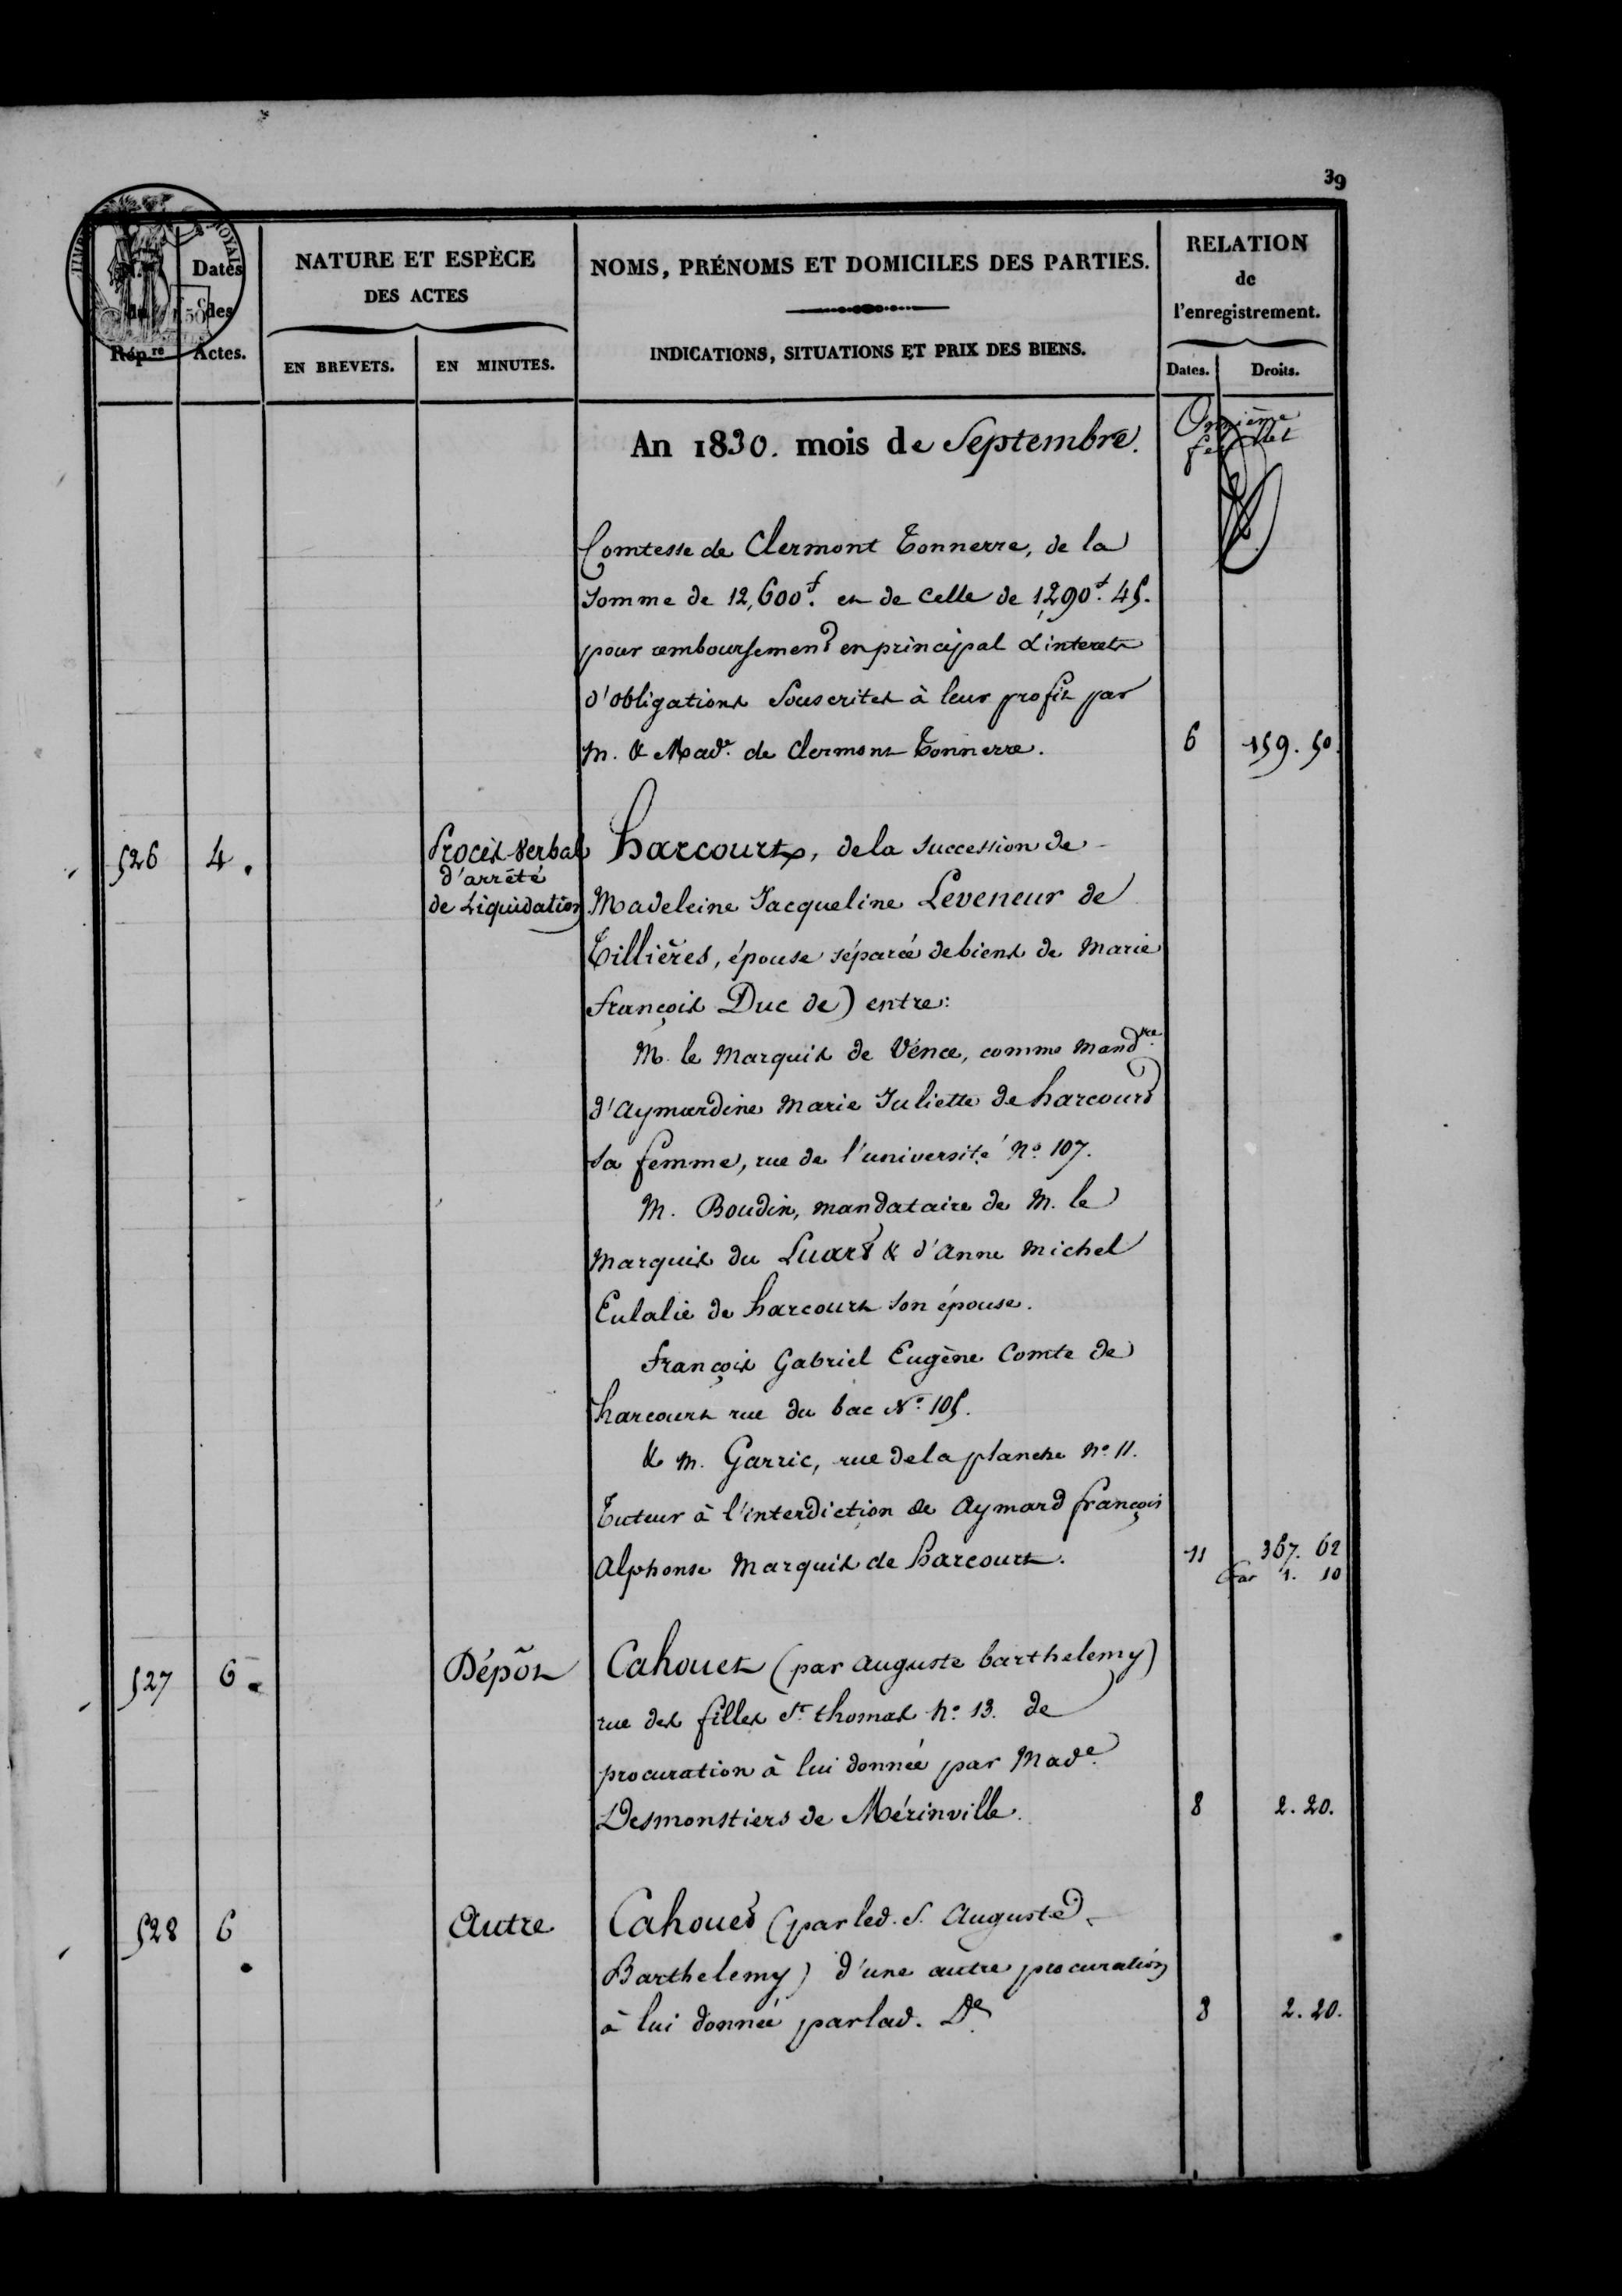 39
TIMBRE ROYAL
N.os du Rép.re
Dates des Actes.
NATURE ET ESPÈCE
DES ACTES
EN BREVETS.
EN MINUTES.
NOMS, PRÉNOMS ET DOMICILES DES PARTIES.
INDICATIONS, SITUATIONS ET PRIX DES BIENS.
RELATION
de
l'enregistrement.
Dates.
Droits.
An 1830. mois de Septembre.
Onzième
feuillet
Comtesse de Clermont Tonnerre, de la
Somme de 12,600f. et de celle de 1,290f. 45.
pour remboursement en principal & interets
d'obligations Souscrites à leur profit par
M. & Made. de Clermont Tonnerre. 6 159. 50.
526 4. Procès-Verbal Harcourt, de la succession de
d'arrêté
de Liquidation Madeleine Jacqueline Leveneur de
Tillières, épouse séparée de biens de Marie
François Duc de) entre:
M. le Marquis de Vence, comme mandre.
d'Aymardine Marie Juliette de harcourt
sa femme, rue de l'université No. 107.
M. Boudin, mandataire de M. le
Marquis du Luart & d'Anne Michel
Eulalie de harcourt son épouse.
François Gabriel Eugène Comte de
harcourt rue du bac No. 105.
& M. Garric, rue de la planche No. 11.
Tuteur à l'interdiction de Aymard françois
Alphonse Marquis de harcourt. 11 367. 62
1. 10
527 6. Dépôt Cahouet (par Auguste barthelemy)
rue des filles St. thomas No. 13. de
procuration à lui donnée par Made.
Desmonstiers de Mérinville. 8 2. 20.
528 6. Autre Cahouet (par led. S. Auguste
Barthelemy) d'une autre procuration
à lui donnée par lad. De. 8 2. 20.